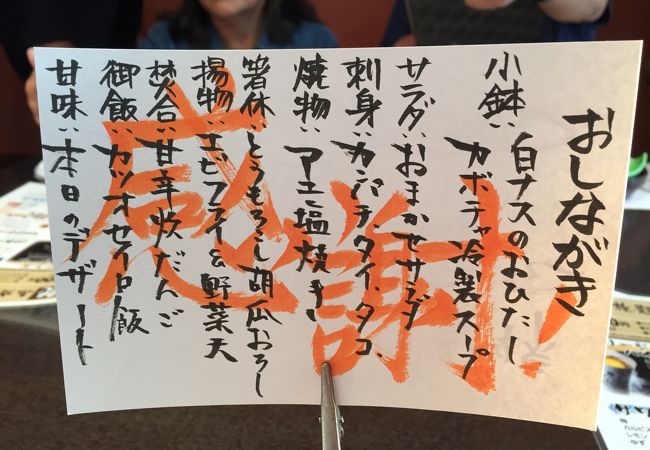 おしながき
小鉢、白ナスのおひたし
カボチャ冷製スープ
サラダ、おまかせサラダ
刺身、カンパチ、タイ、タコ
焼物、アユ塩焼き
箸休、とうもろこし胡瓜おろし
揚物、エビフライ&野菜天
焚合、甘辛炊だんご
御飯、カツオセイロ飯
甘味、本日のデザート
感謝!
レモン
ゆず